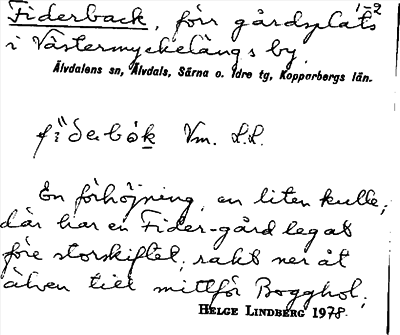 Fiderback, förr gårdsplats 1-2
i Västermyckelängs by.
Älvdalens sn, Älvdals, Särna o. Idre tg, Kopparbergs län.
fi̋derbòk Vm. L.L.
En förhöjning, en liten kulle;
där har en Fider-gård legat
före storskiftet; rakt ner åt
älven till mittför Bogghol;
HELGE LINDBERG 1978.